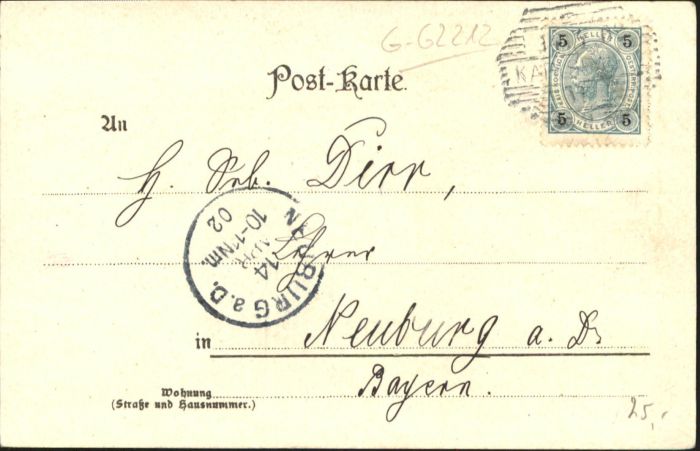 G-G2212
5 HELLER 5
KA
5 HELLER 5
Post-Karte.
An
H. Seb. Dirr,
Lehrer
NEUBURG a.D.
14
APR
10-11 Nm.
02
in Neuburg a. D.
Bayern.
Wohnung
(Straße und Hausnummer.)
25,-